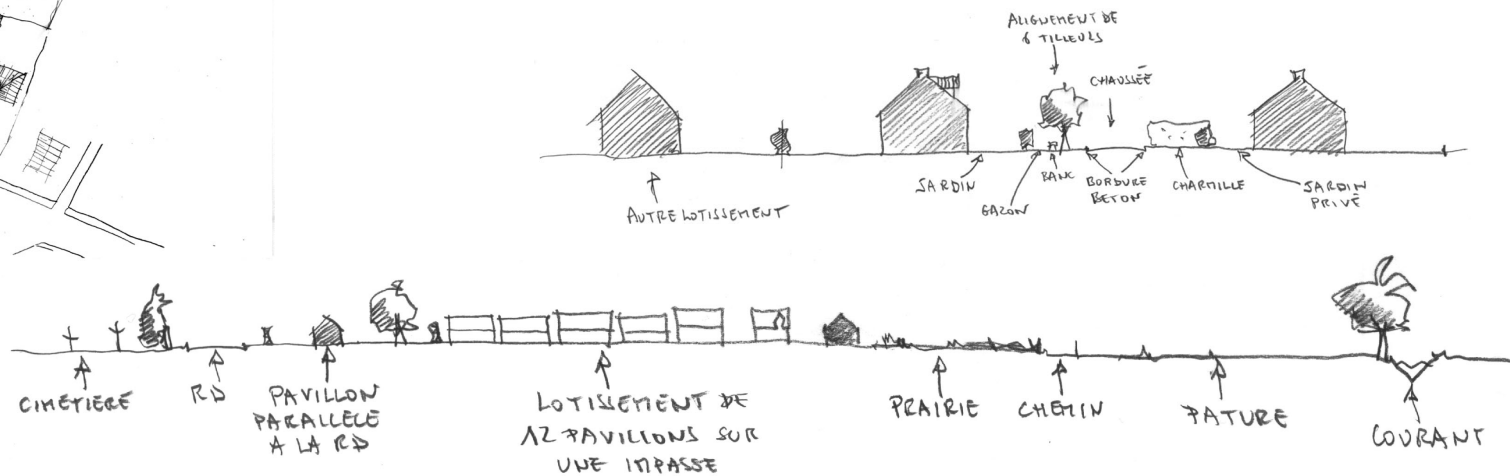 ALIGNEMENT DE
6 TILLEULS
CHAUSSÉE
JARDIN
GAZON
BANC
BORDURE
BETON
CHARMILLE
JARDIN
PRIVÉ
AUTRE LOTISSEMENT
CIMETIERE
RD
PAVILLON
PARALLELE
A LA RD
LOTISSEMENT DE
12 PAVILLONS SUR
UNE IMPASSE
PRAIRIE
CHEMIN
PATURE
COURANT